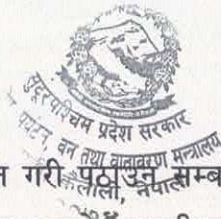 सुदूरपश्चिम प्रदेश सरकार
पर्यटन, वन तथा वातावरण मन्त्रालय
कैलाली, नेपाल
न गरी पठाउन सम्ब